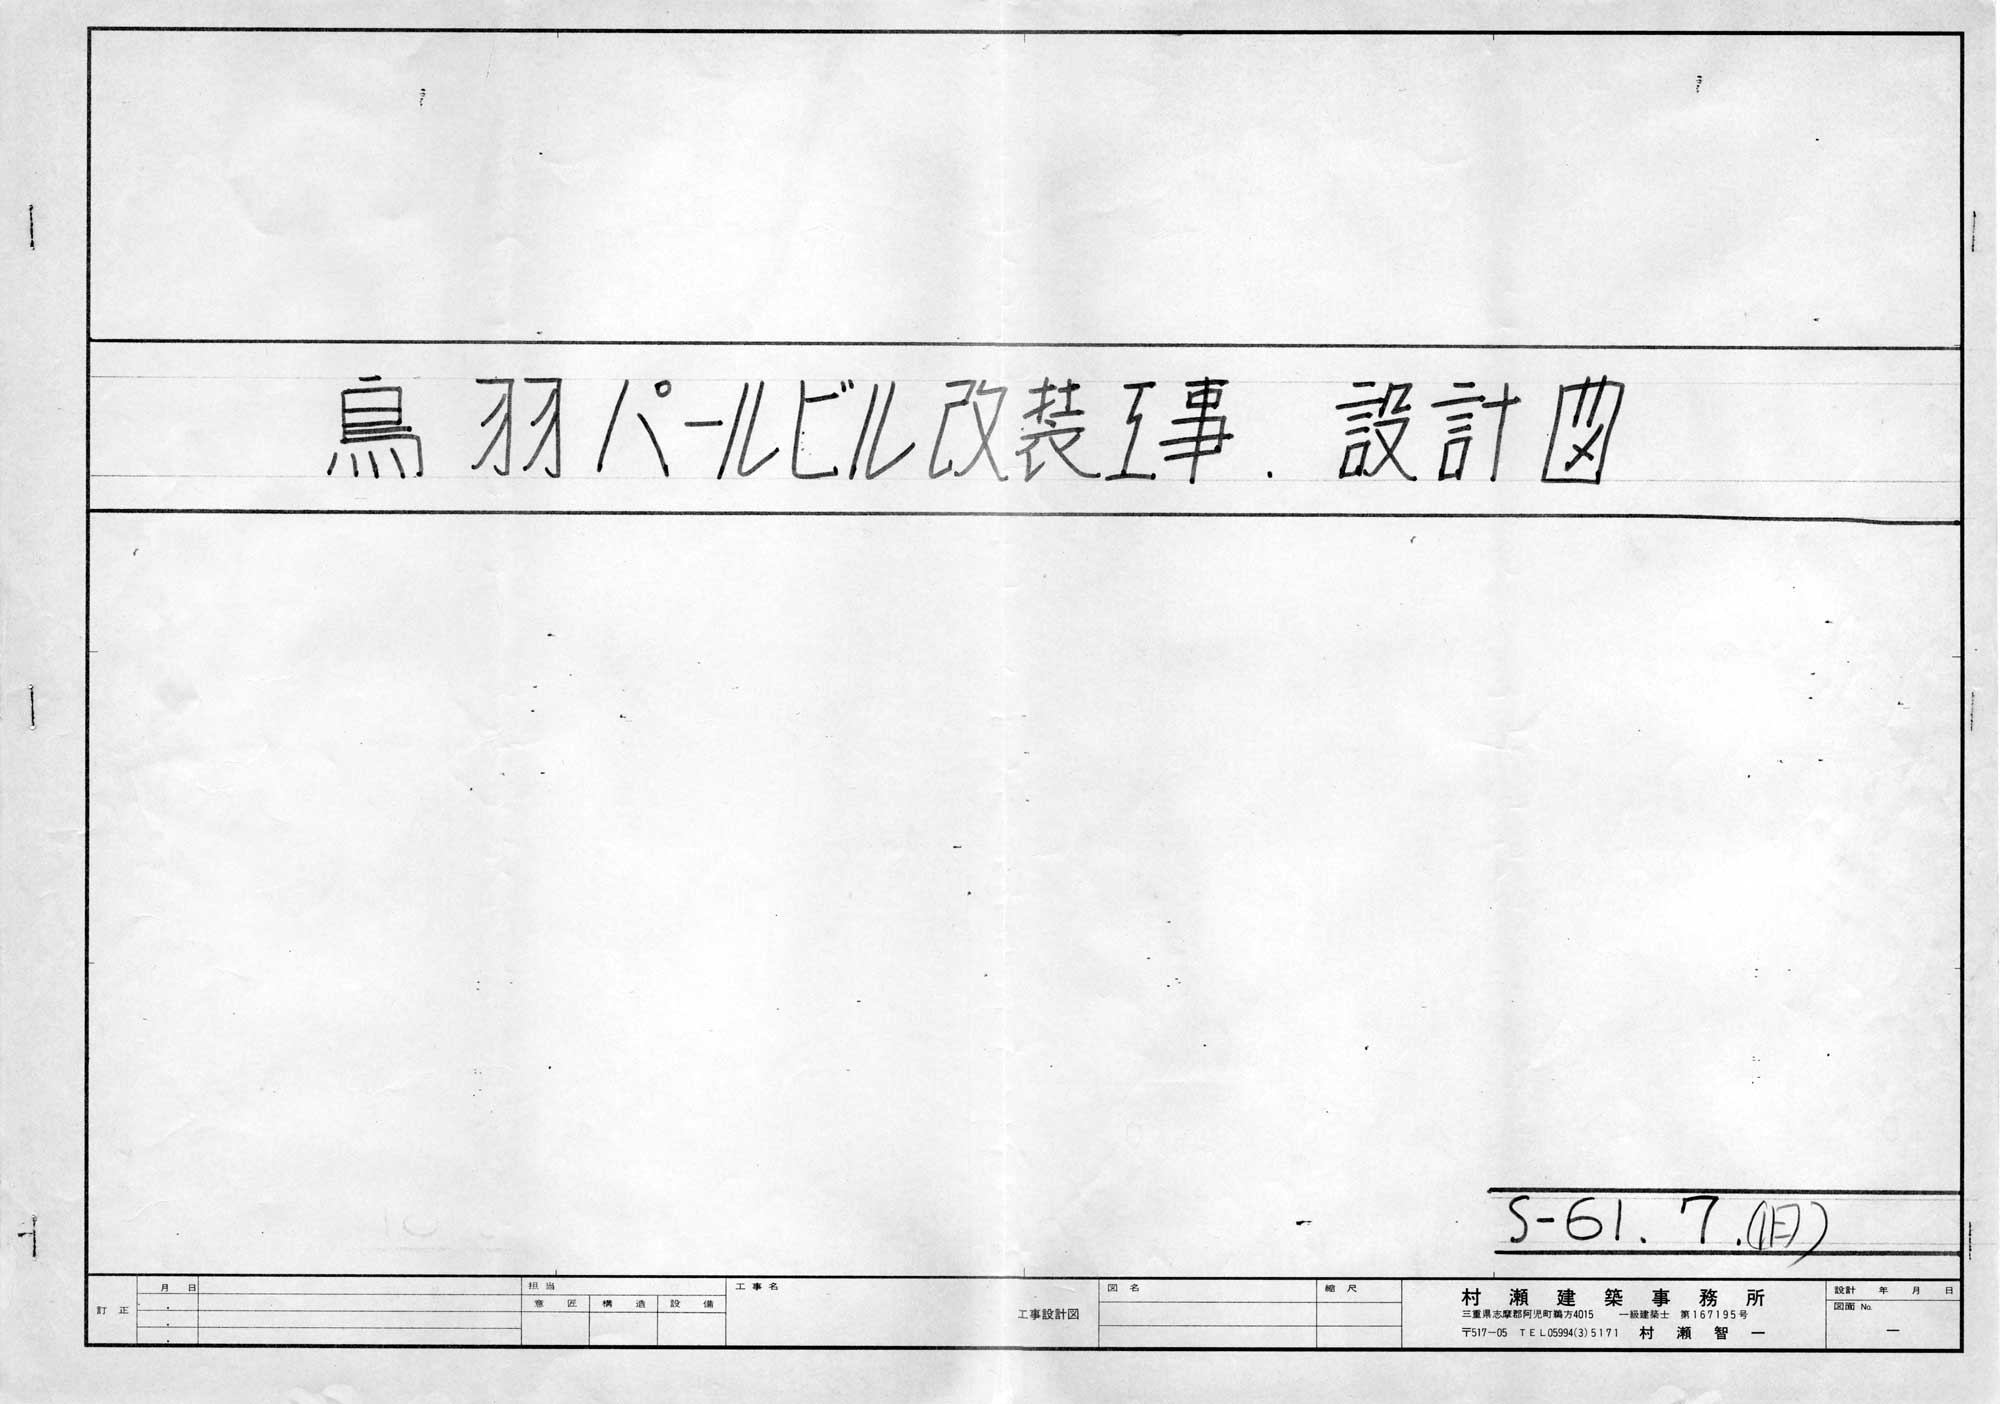 鳥羽パールビル改装工事. 設計図
S-61. 7.(旧)
訂正
月 日
担当
意匠 構造 設備
工事名
工事設計図
図名
縮尺
村瀬建築事務所
三重県志摩郡阿児町鵜方4015 一級建築士 第167195号
〒517-05 TEL05994(3)5171 村瀬智一
設計 年 月 日
図面 No.
—